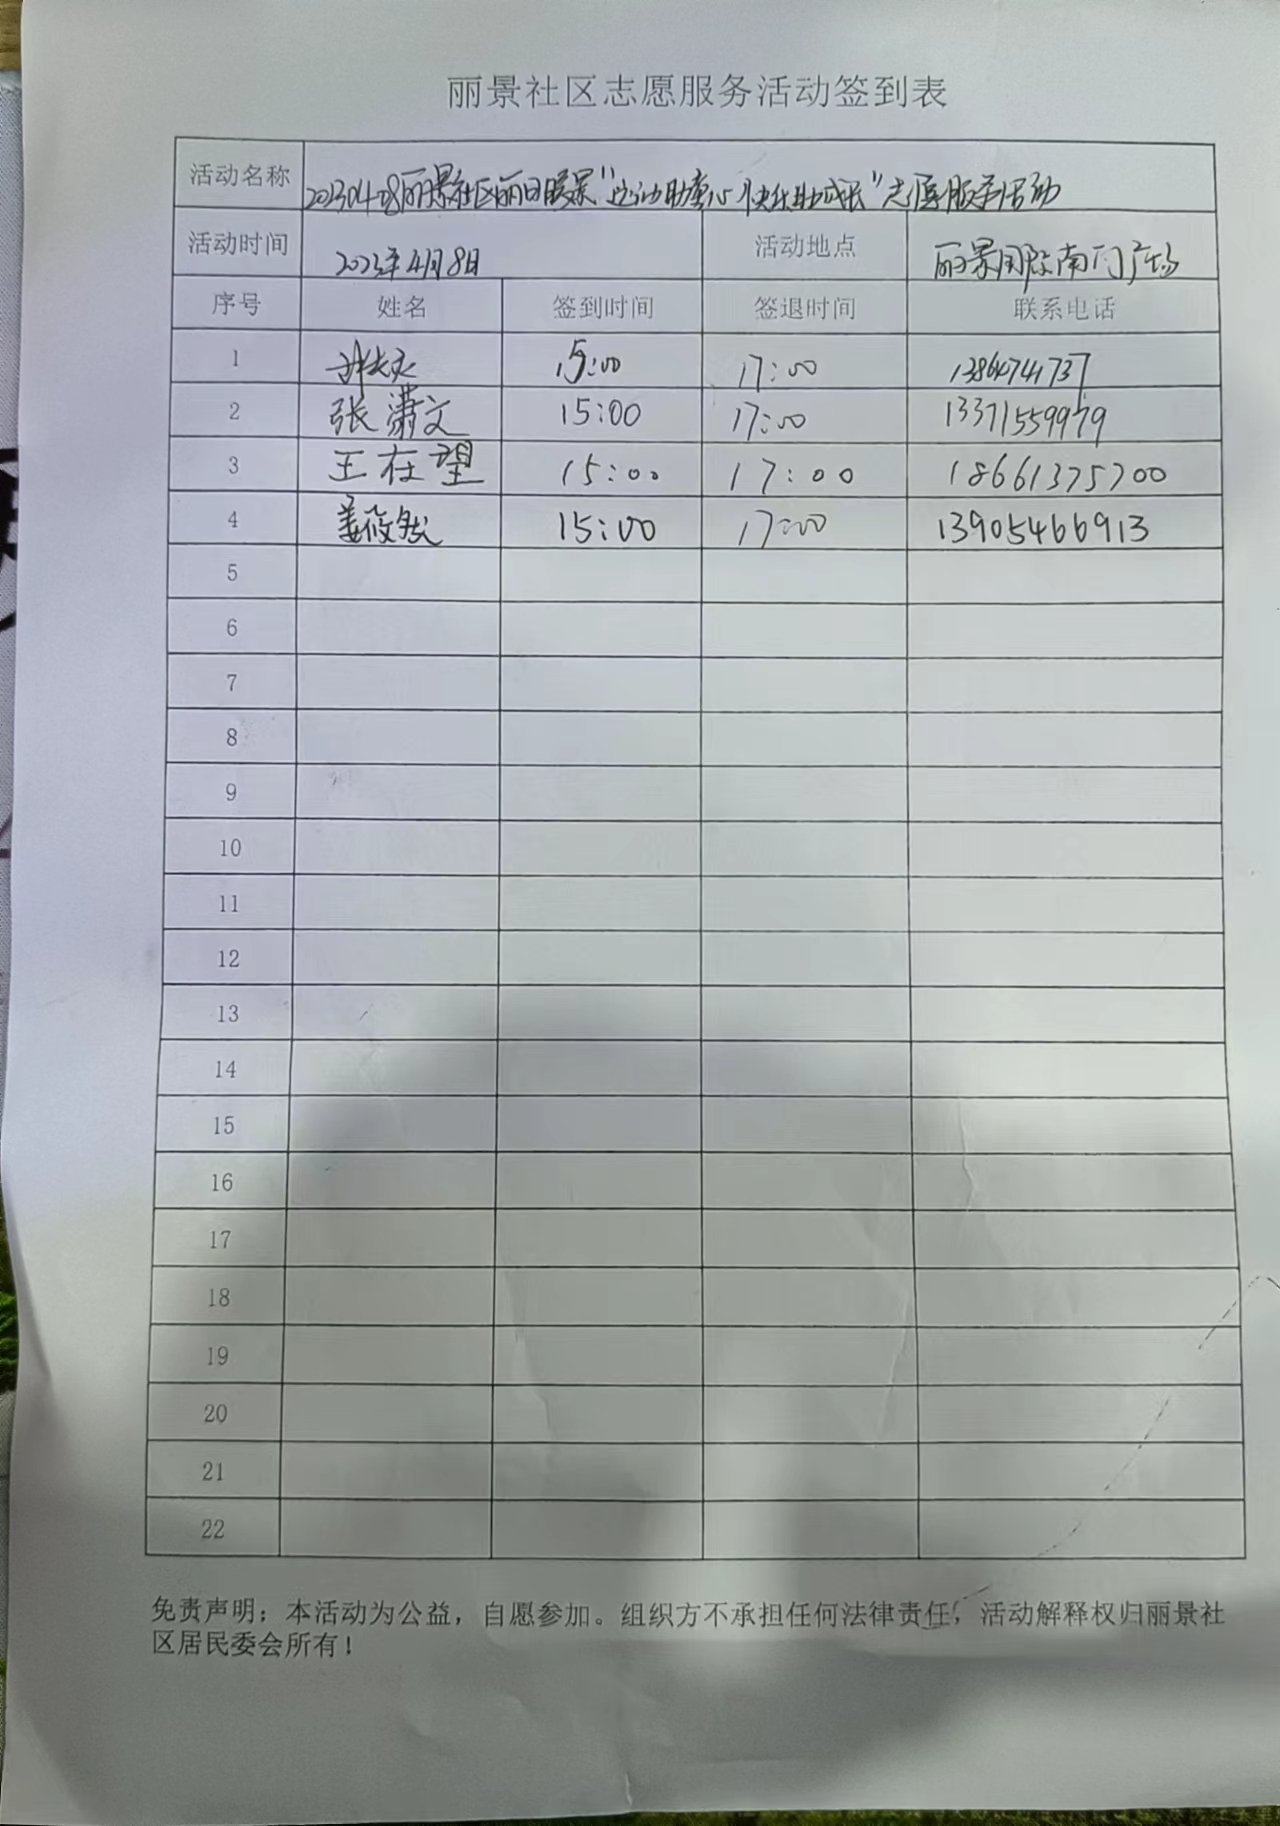 丽景社区志愿服务活动签到表
活动名称 20230408丽景社区丽日暖景"运动助童心 快乐助成长"志愿服务活动
活动时间 2023年4月8日 活动地点 丽景国际南门广场
序号 姓名 签到时间 签退时间 联系电话
1 15:00 17:00 13864741737
2 张潇文 15:00 17:00 13371559979
3 王在望 15:00 17:00 18661375700
4 姜筱然 15:00 17:00 13905466913
5
6
7
8
9
10
11
12
13
14
15
16
17
18
19
20
21
22
免责声明：本活动为公益，自愿参加。组织方不承担任何法律责任，活动解释权归丽景社
区居民委会所有！